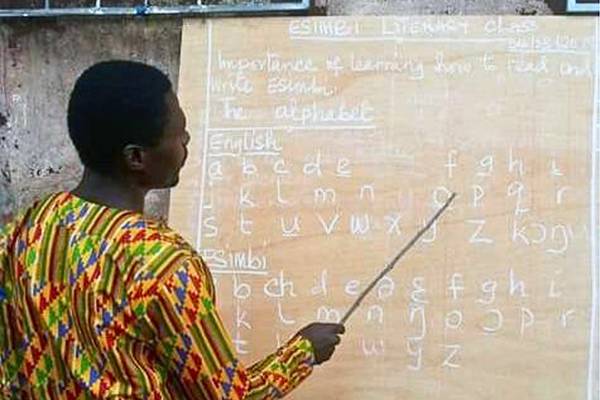 ESIMBI LITERACY Class
Importance of learning how to read and
write ESIMBI.
The alphabet
English
a b c d e f g h i
k l m n o p q r
s t u v w x y z
Esimbi
b ch d e ə ɛ f g h i
k l m n ŋ o ɔ p r
t w y z